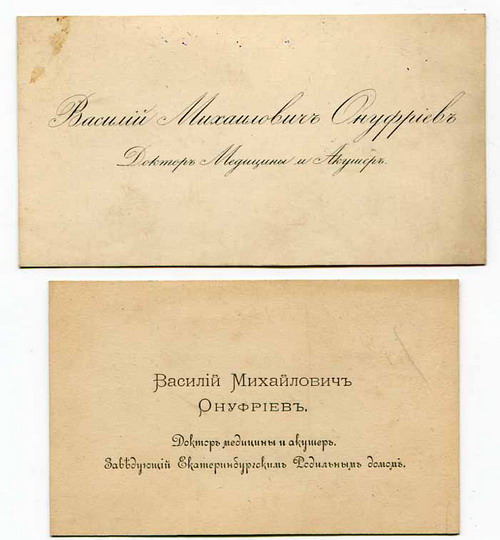 Василій Михаиловичъ Онуфріевъ
Докторъ Медицины и Акушеръ.
Василій Михайловичъ
Онуфріевъ.
Докторъ медицины и акушеръ.
Завѣдующій Екатеринбургскимъ Родильнымъ домомъ.